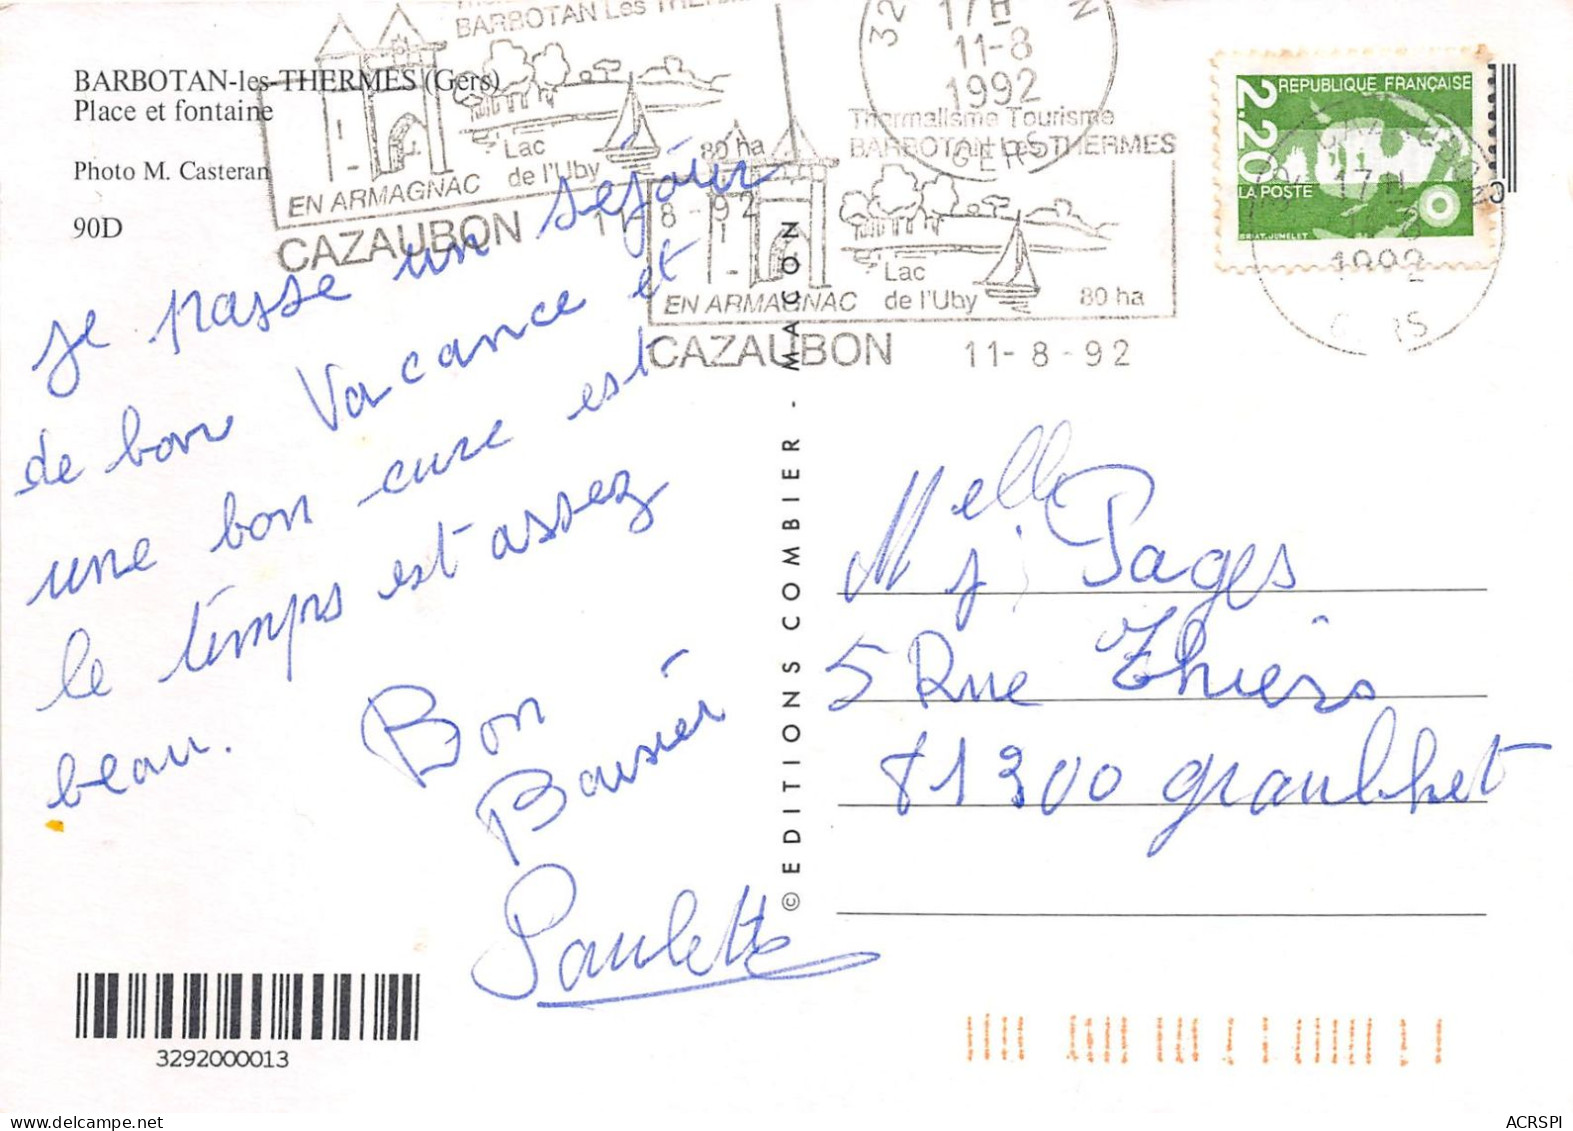 BARBOTAN-les-THERMES (Gers)
Place et fontaine
Photo M. Casteran
90D
BARBOTAN Les THERMES
Lac
de l'Uby
80 ha
EN ARMAGNAC
CAZAUBON
11-8-92
32
17H
11-8
1992
GERS
Thermalisme Tourisme
BARBOTAN Les THERMES
Lac
de l'Uby
80 ha
EN ARMAGNAC
CAZAUBON
11-8-92
2.20
REPUBLIQUE FRANÇAISE
LA POSTE
BRIAT.JUMELET
17H
1992
je passe un séjour
de bon Vacance et
une bon cure est
le temps est assez
beau.
Bon
Baisier
Paulette
© EDITIONS COMBIER - MACON
Melle j. Pages
5 Rue Thiers
81300 graulhet
3292000013
ACRSPI